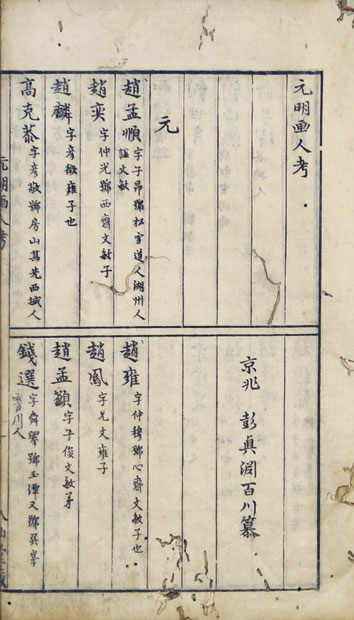 元明画人考
京兆　彭眞淵百川纂
元
趙孟頫 字子昂號松雪道人湖州人
諡文敏
趙雍 字仲穆號心齋文敏子也
趙奕 字仲光號西齋文敏子
趙鳳 字允文雍子
趙麟 字彦徵雍子也
趙孟籲 字子俊文敏弟
高克恭 字彦敬號房山其先西域人
錢選 字舜舉號玉潭又號巽峯
霅川人
元明画人考